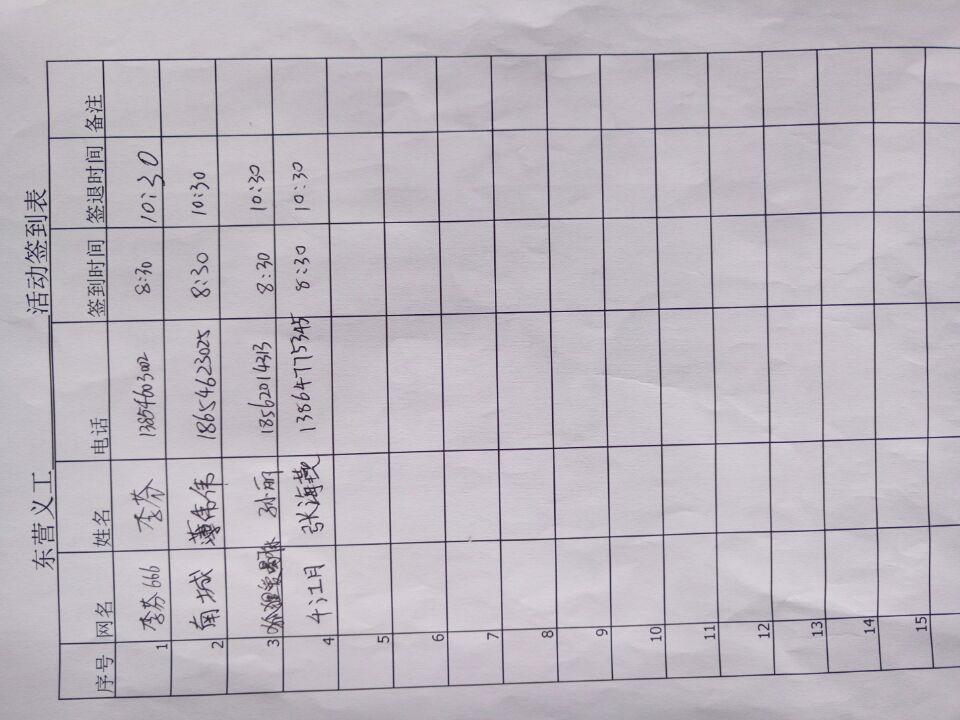 东营义工 活动签到表
序号 网名 姓名 电话 签到时间 签退时间 备注
1 李芬666 李芬 13854603002 8:30 10:30
2 南城 薄伟伟 18654623025 8:30 10:30
3 孙丽 18562014313 8:30 10:30
4 千江月 张海燕 13864775345 8:30 10:30
5
6
7
8
9
10
11
12
13
14
15